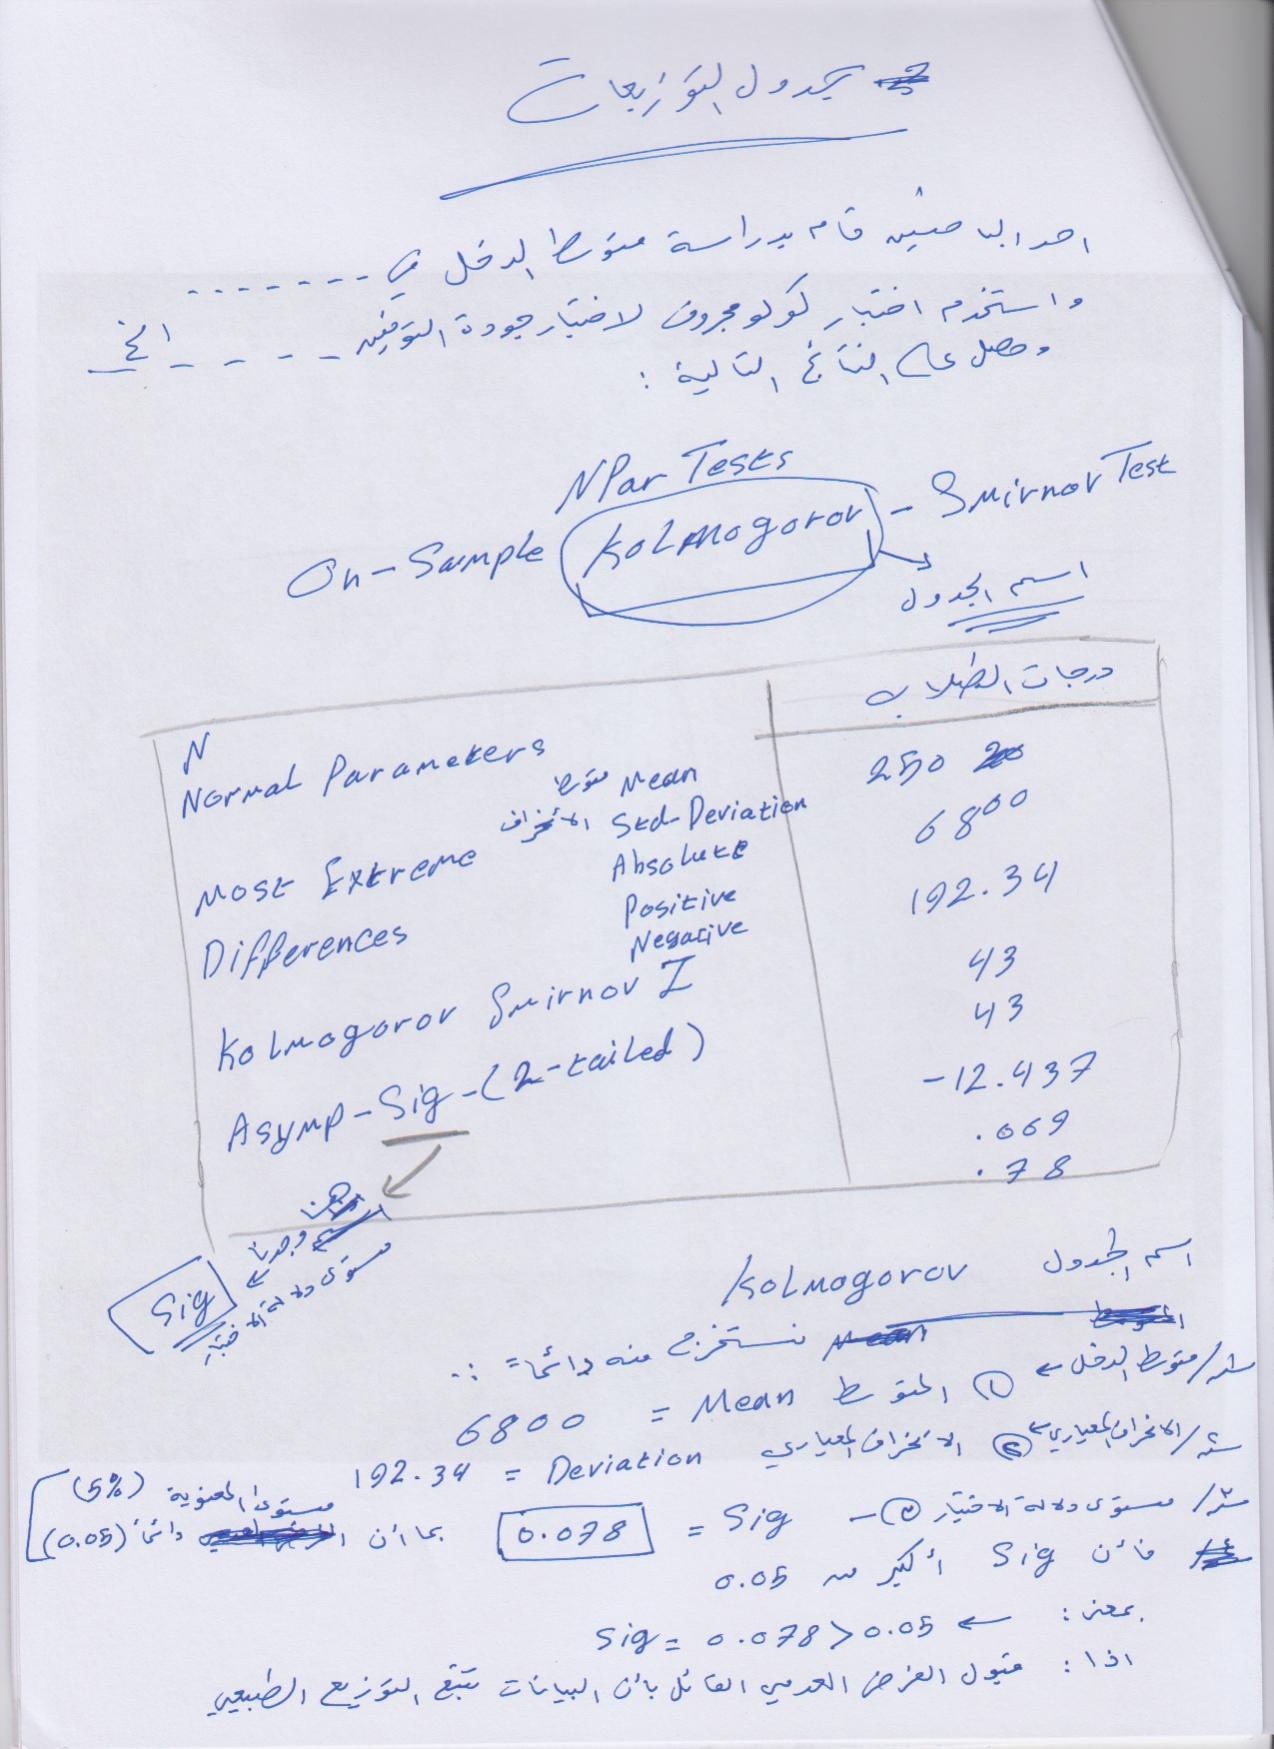 جدول التوزيعات
احد الباحثين قام بدراسة متوسط الدخل في .......
واستخدم اختبار كولومجروف لاختبار جودة التوفيق ---- الخ
وحصل على النتائج التالية :
NPar Tests
On-Sample Kolmogorov - Smirnov Test
اسم الجدول
درجات الطلاب
N
250
Normal Parameters
متوسط Mean
6800
الانحراف Std-Deviation
192.34
Most Extreme
Differences
Absolute
43
Positive
43
Negative
-12.437
Kolmogorov Smirnov Z
.069
Asymp-Sig-(2-tailed)
.78
Sig
مستوى دلالة الاختبار
اسم الجدول Kolmogorov
نستخرج منه دائماً :
متوسط الدخل ← ① المتوسط Mean = 6800
الانحراف المعياري ← ② الانحراف المعياري Deviation = 192.34
مستوى دلالة الاختبار ③ - Sig = 0.078
بما أن مستوى المعنوية (5%) دائماً (0.05)
فأن Sig أكبر من 0.05
بمعنى : ← Sig = 0.078 > 0.05
اذا : قبول الفرض العدمي القائل بأن البيانات تتبع التوزيع الطبيعي